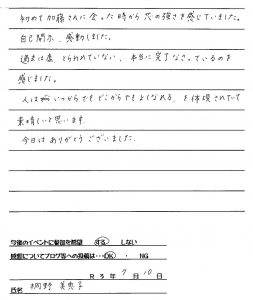 初めて加藤さんに会った時から芯の強さを感じていました。
自己開示、感動しました。
過去は虚 とらわれていない、本当に完了なさっているのを
感じました。
人は いつからでもどこからでもよくなれる、を体現されていて
素晴しいと思います。
今日はありがとうございました。
今後のイベントに参加を希望 する しない
感想についてブログ等への投稿は・・・OK ・ NG
R3年 7月 10日
氏名 桐野 美典子